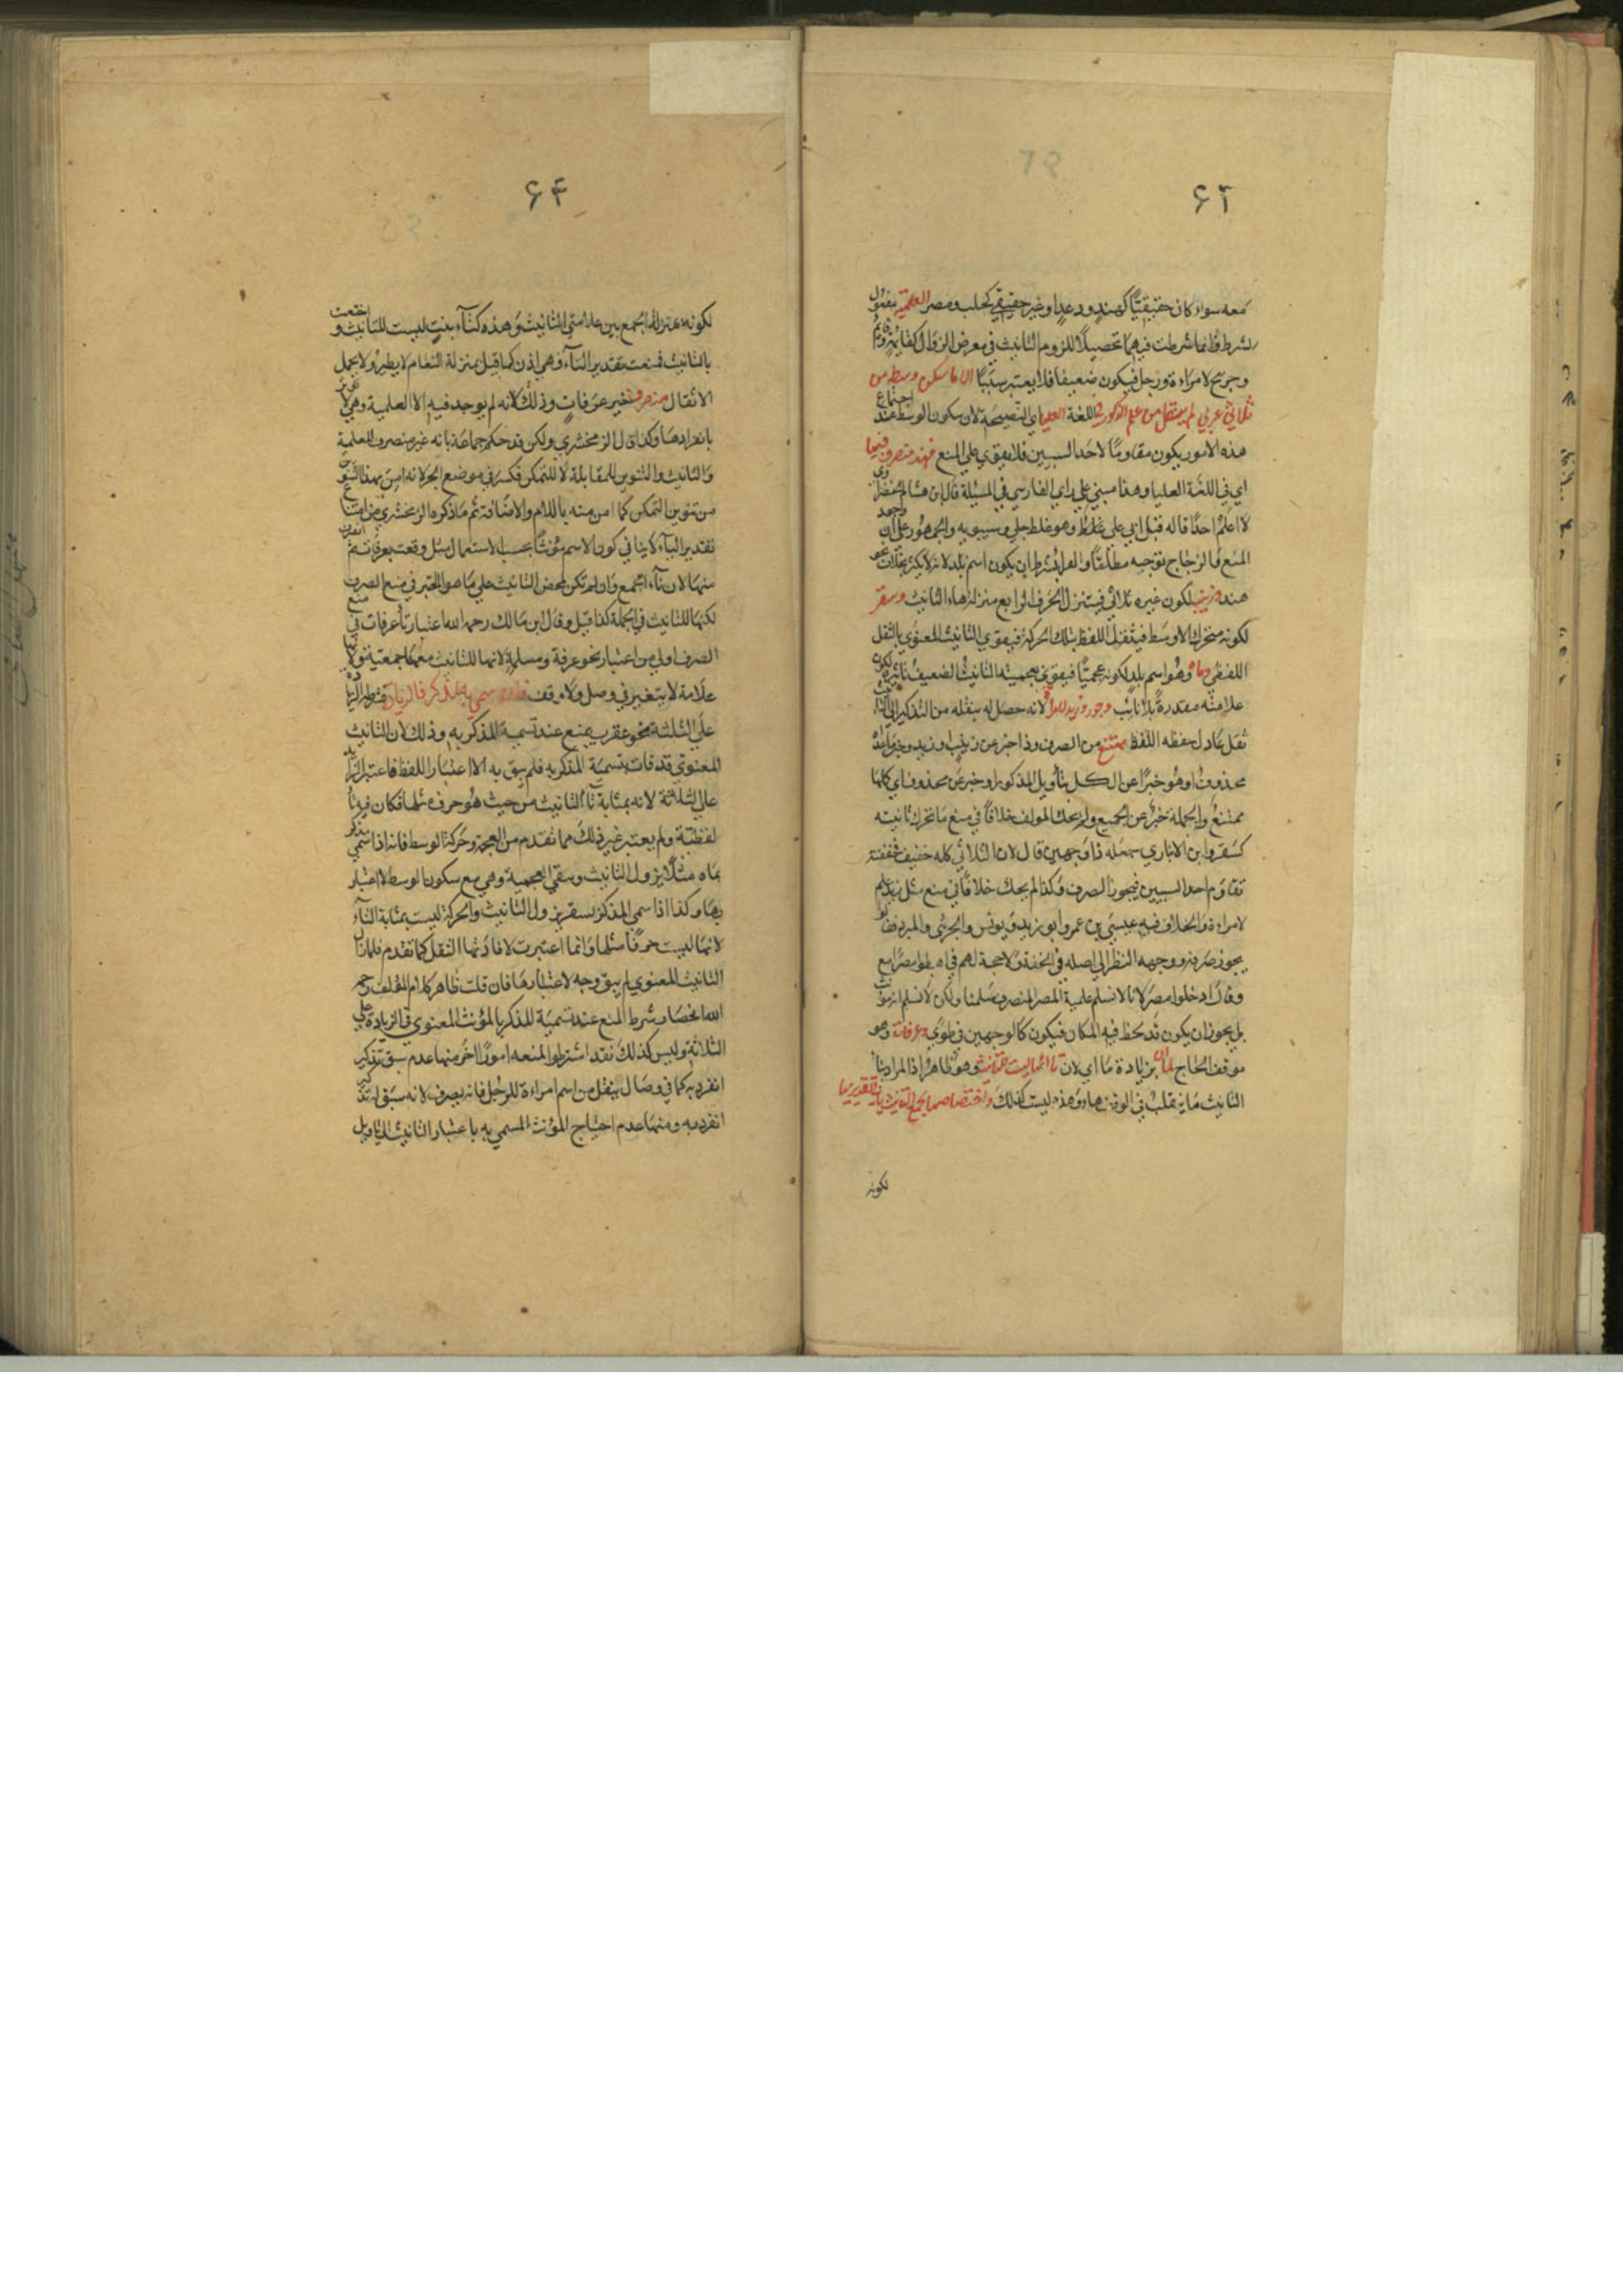 ٦٣
معه سواء كان حقيقيا كهند ودعد او غير حقيقي كحلب ومصر العلمية مفعول
لشرط وانما شرطت فيهما تحصيلا للزوم التانيث في معرض الزوال كقائمة
وجريح لامراءة ورجل فيكون ضعيفا فلا يعتبر سببا الا ما سكن وسطه من
ثلاثي عربي لم ينتقل من علم الذكور في اللغة العليا اي الفصيحة لان سكون الوسط عند اجتماع
هذه الامور يكون مقاوما لاحد السببين فلا يقوي على المنع فهند منصرف فيها
اي في اللغة العليا وهذا مبني على راي الفارسي في المسئلة قال ابن هشام
لا اعلم احدا قاله قبل ابي علي وهو غلط جلي وسيبويه والجمهور على ان
المنع قال الزجاج توجيه مطلقا والفراء بشرط ان يكون اسم بلد لانه لا يكثر بخلاف نحو
هند وزينب لكون غيره ثلاثي فيتنزل الحرف الرابع منزلة هاء التانيث وسقر
لكونه متحرك الاوسط فيثقل اللفظ بتلك الحركة فيقوي التانيث المعنوي بالثقل
اللفظي وماه وهو اسم بلد لكونه عجميا فيقوي بعجميته التانيث الضعيف تاثيره لكون
علامته مقدرة بلا نائب وجور وزيد لامراة لانه حصل له بنقله من التذكير الى التانيث
ثقل عادل خفة اللفظ ممتنع من الصرف وذا خبر عن زينب او زيد وخبر ما عداه
محذوف او هو خبر عن الكل بتأويل المذكور او خبر عن محذوف اي كلها
ممتنع والجملة خبر عن الجميع ولم يحك المولف خلافا في منع ما تحرك ثانيه
كسقر وابن الانباري جعله ذا وجهين قال لان الثلاثي كله خفيف فخفته
تقاوم احد السببين فيجوز الصرف وكذا لم يحك خلافا في منع مثل زيد علم
لامراءة والخلاف فيه عيسى بن عمرو ابو زيد ويونس والجرمي والمبرد فقالوا
يجوز صرفه ووجهه النظر الى اصله في الخفة ولا حجة لهم في اهبطوا مصرا مع
وقال ادخلوا مصر لانا لا نسلم علمية المصر المنصرف سلمنا ولكن لا نسلم انه مؤنث
بل يجوز ان يكون قد لحظ فيه المكان فيكون كالوجهين في طوى وعرفات وهو
موقف الحاج بزيادة ما اي لان تاءها ليست للتانيث وهو ظاهر اذ المراد بتاء
التانيث ما ينقلب في الوقف هاء وهذه ليست كذلك واختصاصها بجمع التانيث يابى تقديرها
لكونه
٦٤
لكونه بمنزلة الجمع بين علامتي التانيث وهذه كتاء بنت ليست للتانيث واختصت
بالتانيث فمنعت تقدير التاء وهي اذن كما قيل بمنزلة النعام لا يطير ولا يحمل
الاثقال منصرف تغير عرفات وذلك لانه لم يوجد فيه الا العلمية وهي لا تؤثر
بانفرادها وكذا قال الزمخشري ولكن قد حكم جماعة بانه غير منصرف للعلمية
والتانيث والتنوين للمقابلة لا للتمكن فكسر في موضع الجر لانه امن بهذا التنوين
من تنوين التمكن كما امن منه باللام والاضافة ثم ما ذكره الزمخشري من امتناع
تقدير التاء لا ينافي كون الاسم مؤنثا بحسب الاستعمال مثل وقعت بعرفات ثم
منها لان تاء الجمع وان لم تكن لمحض التانيث على ما هو المعتبر في منع الصرف
لكنها للتانيث في الجملة كذا قيل وقال ابن مالك رحمه الله اعتبار تاء عرفات في منع
الصرف اولى من اعتبار نحو عرفة ومسلمة لانها للتانيث معها جمعية ولانها
علامة لا يتغير في وصل ولا وقف سمي به مذكر فالزيادة
على الثلثة نحو عقرب يمنع عند تسمية المذكر به وذلك لان التانيث
المعنوي قد فات بتسمية المذكر به فلم يبق به الا اعتبار اللفظ فاعتبر الزائد
على الثلاثة لانه بمثابة تاء التانيث من حيث هو حرف مثلها فكان فيه تاء
لفظية ولم يعتبر غير ذلك مما تقدم من العجمة وحركة الوسط فانه اذا سمي مذكر
بماه مثلا يزول التانيث وبقي العجمية وهي مع سكون الوسط لا اعتبار
بها وكذا اذا سمي المذكر بسقر يزول التانيث والحركة ليست بمثابة التاء
لانها ليست حرفا مثلها وانما اعتبرت لافادتها الثقل كما تقدم فلما زال
التانيث المعنوي لم يبق وجه لاعتبارها فان قلت ظاهر كلام المؤلف رحمه
الله انحصار شرط المنع عند تسمية المذكر بالمؤنث المعنوي في الزيادة على
الثلاثة وليس كذلك فقد اشترطوا لمنعه امورا اخر منها عدم سبق تذكير
انفرد به كما في وصال ينقل من اسم امراءة للرجل فانه يصرف لانه سبق له تذكير
انفرد به ومنها عدم احتياج المؤنث المسمي به باعتبار التانيث الى تاويل